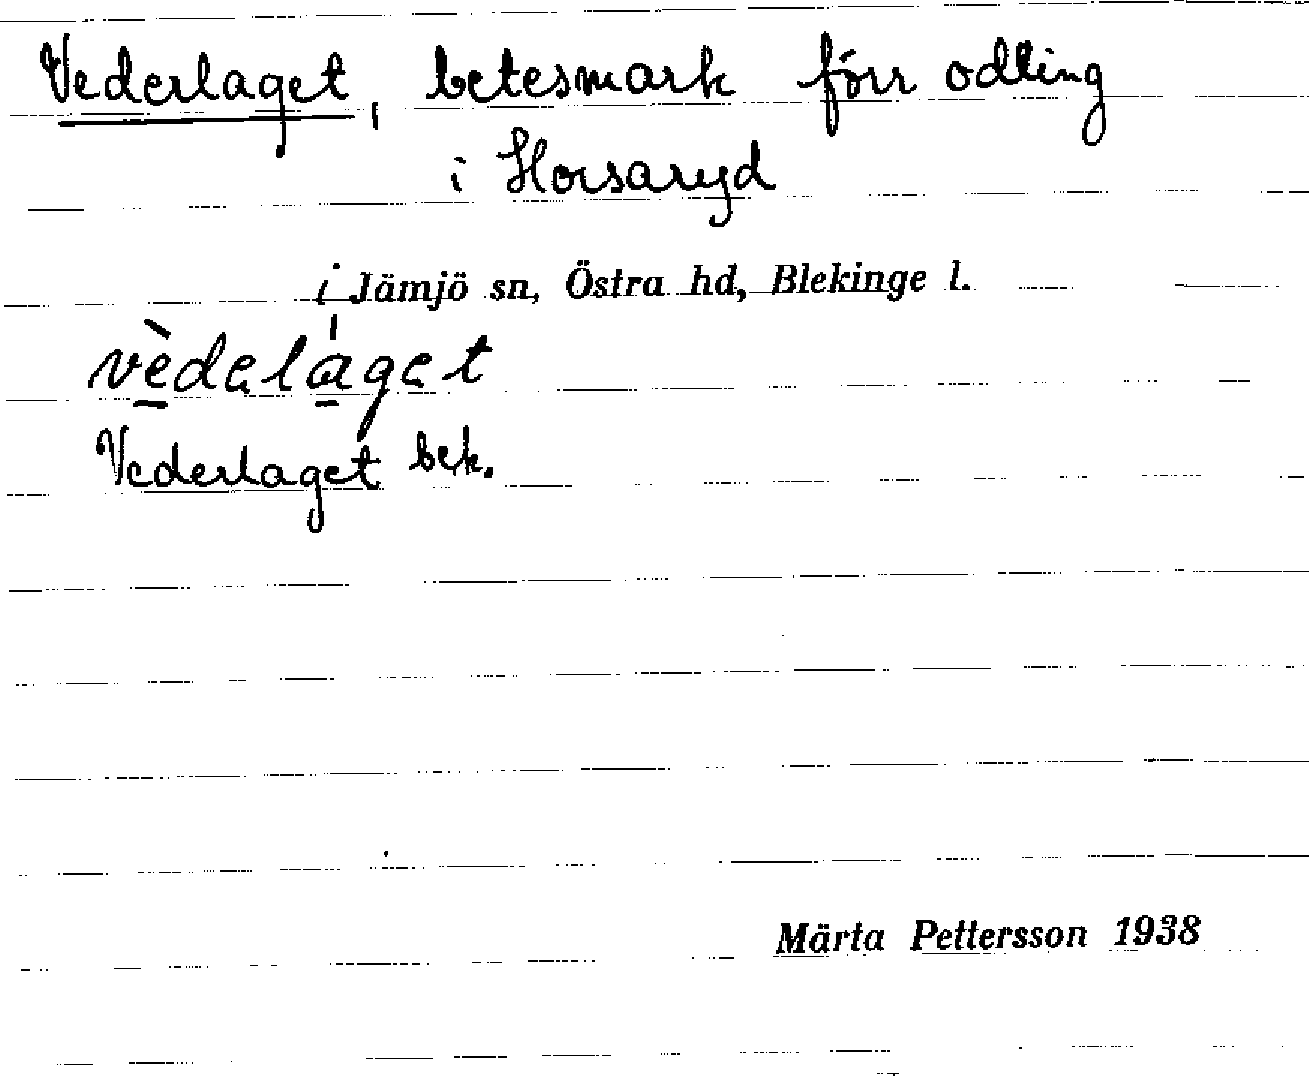 Vederlaget, betesmark förr odling
i Horsaryd
i Jämjö sn, Östra hd, Blekinge l.
vèdeláget
Vederlaget bek.
Märta Pettersson 1938